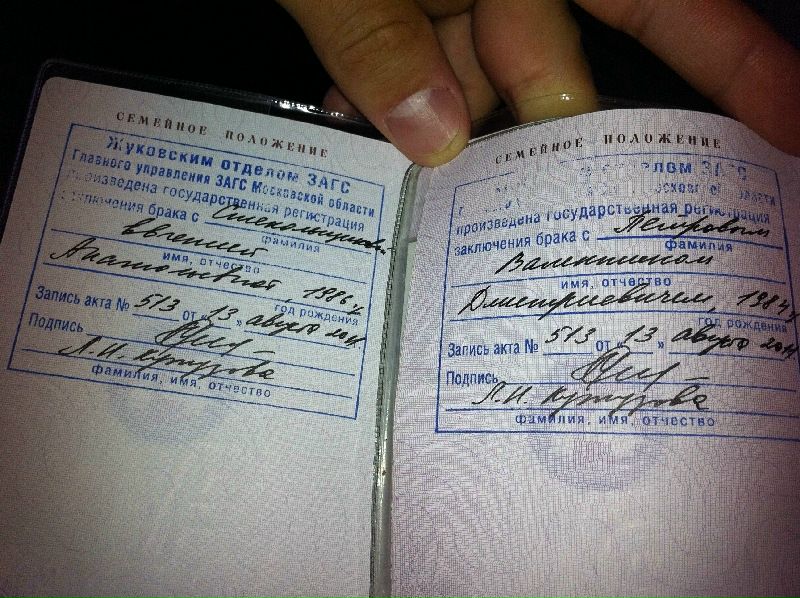 СЕМЕЙНОЕ ПОЛОЖЕНИЕ
Жуковским отделом ЗАГС
Главного управления ЗАГС Московской области
произведена государственная регистрация
заключения брака с
фамилия
Евгенией
имя, отчество
Анатольевной, 1986 г
год рождения
Запись акта № 513 от "13" августа 2011
Подпись
Л.И.
фамилия, имя, отчество
СЕМЕЙНОЕ ПОЛОЖЕНИЕ
отделом ЗАГС
произведена государственная регистрация
заключения брака с Петровым
фамилия
Валентином
имя, отчество
Дмитриевичем, 1984 г
год рождения
Запись акта № 513 от "13" августа 2011
Подпись
Л.И.
фамилия, имя, отчество